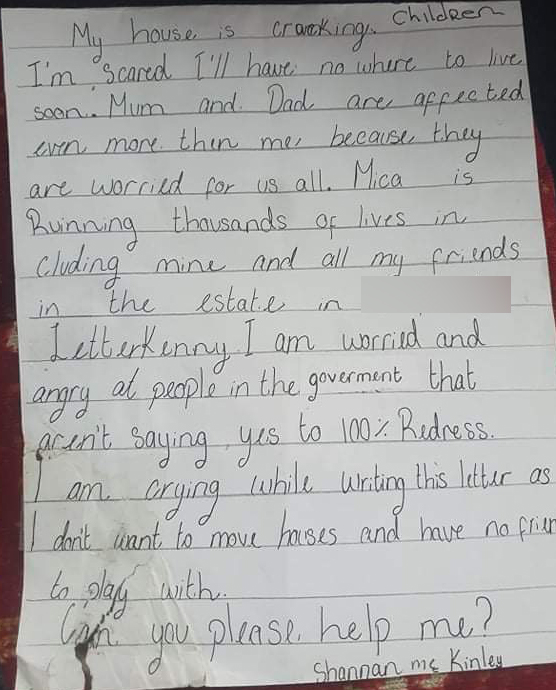 Children
My house is cracking.
I'm scared I'll have no where to live
soon. Mum and Dad are affected
even more then me, because they
are worried for us all. Mica is
Ruinning thousands of lives in
cluding mine and all my friends
in the estate in
Letterkenny I am worried and
angry at people in the goverment that
aren't saying yes to 100% Redress.
I am crying while writing this letter as
I don't want to move houses and have no frien
to play with.
Can you please help me?
Shannan mc Kinley